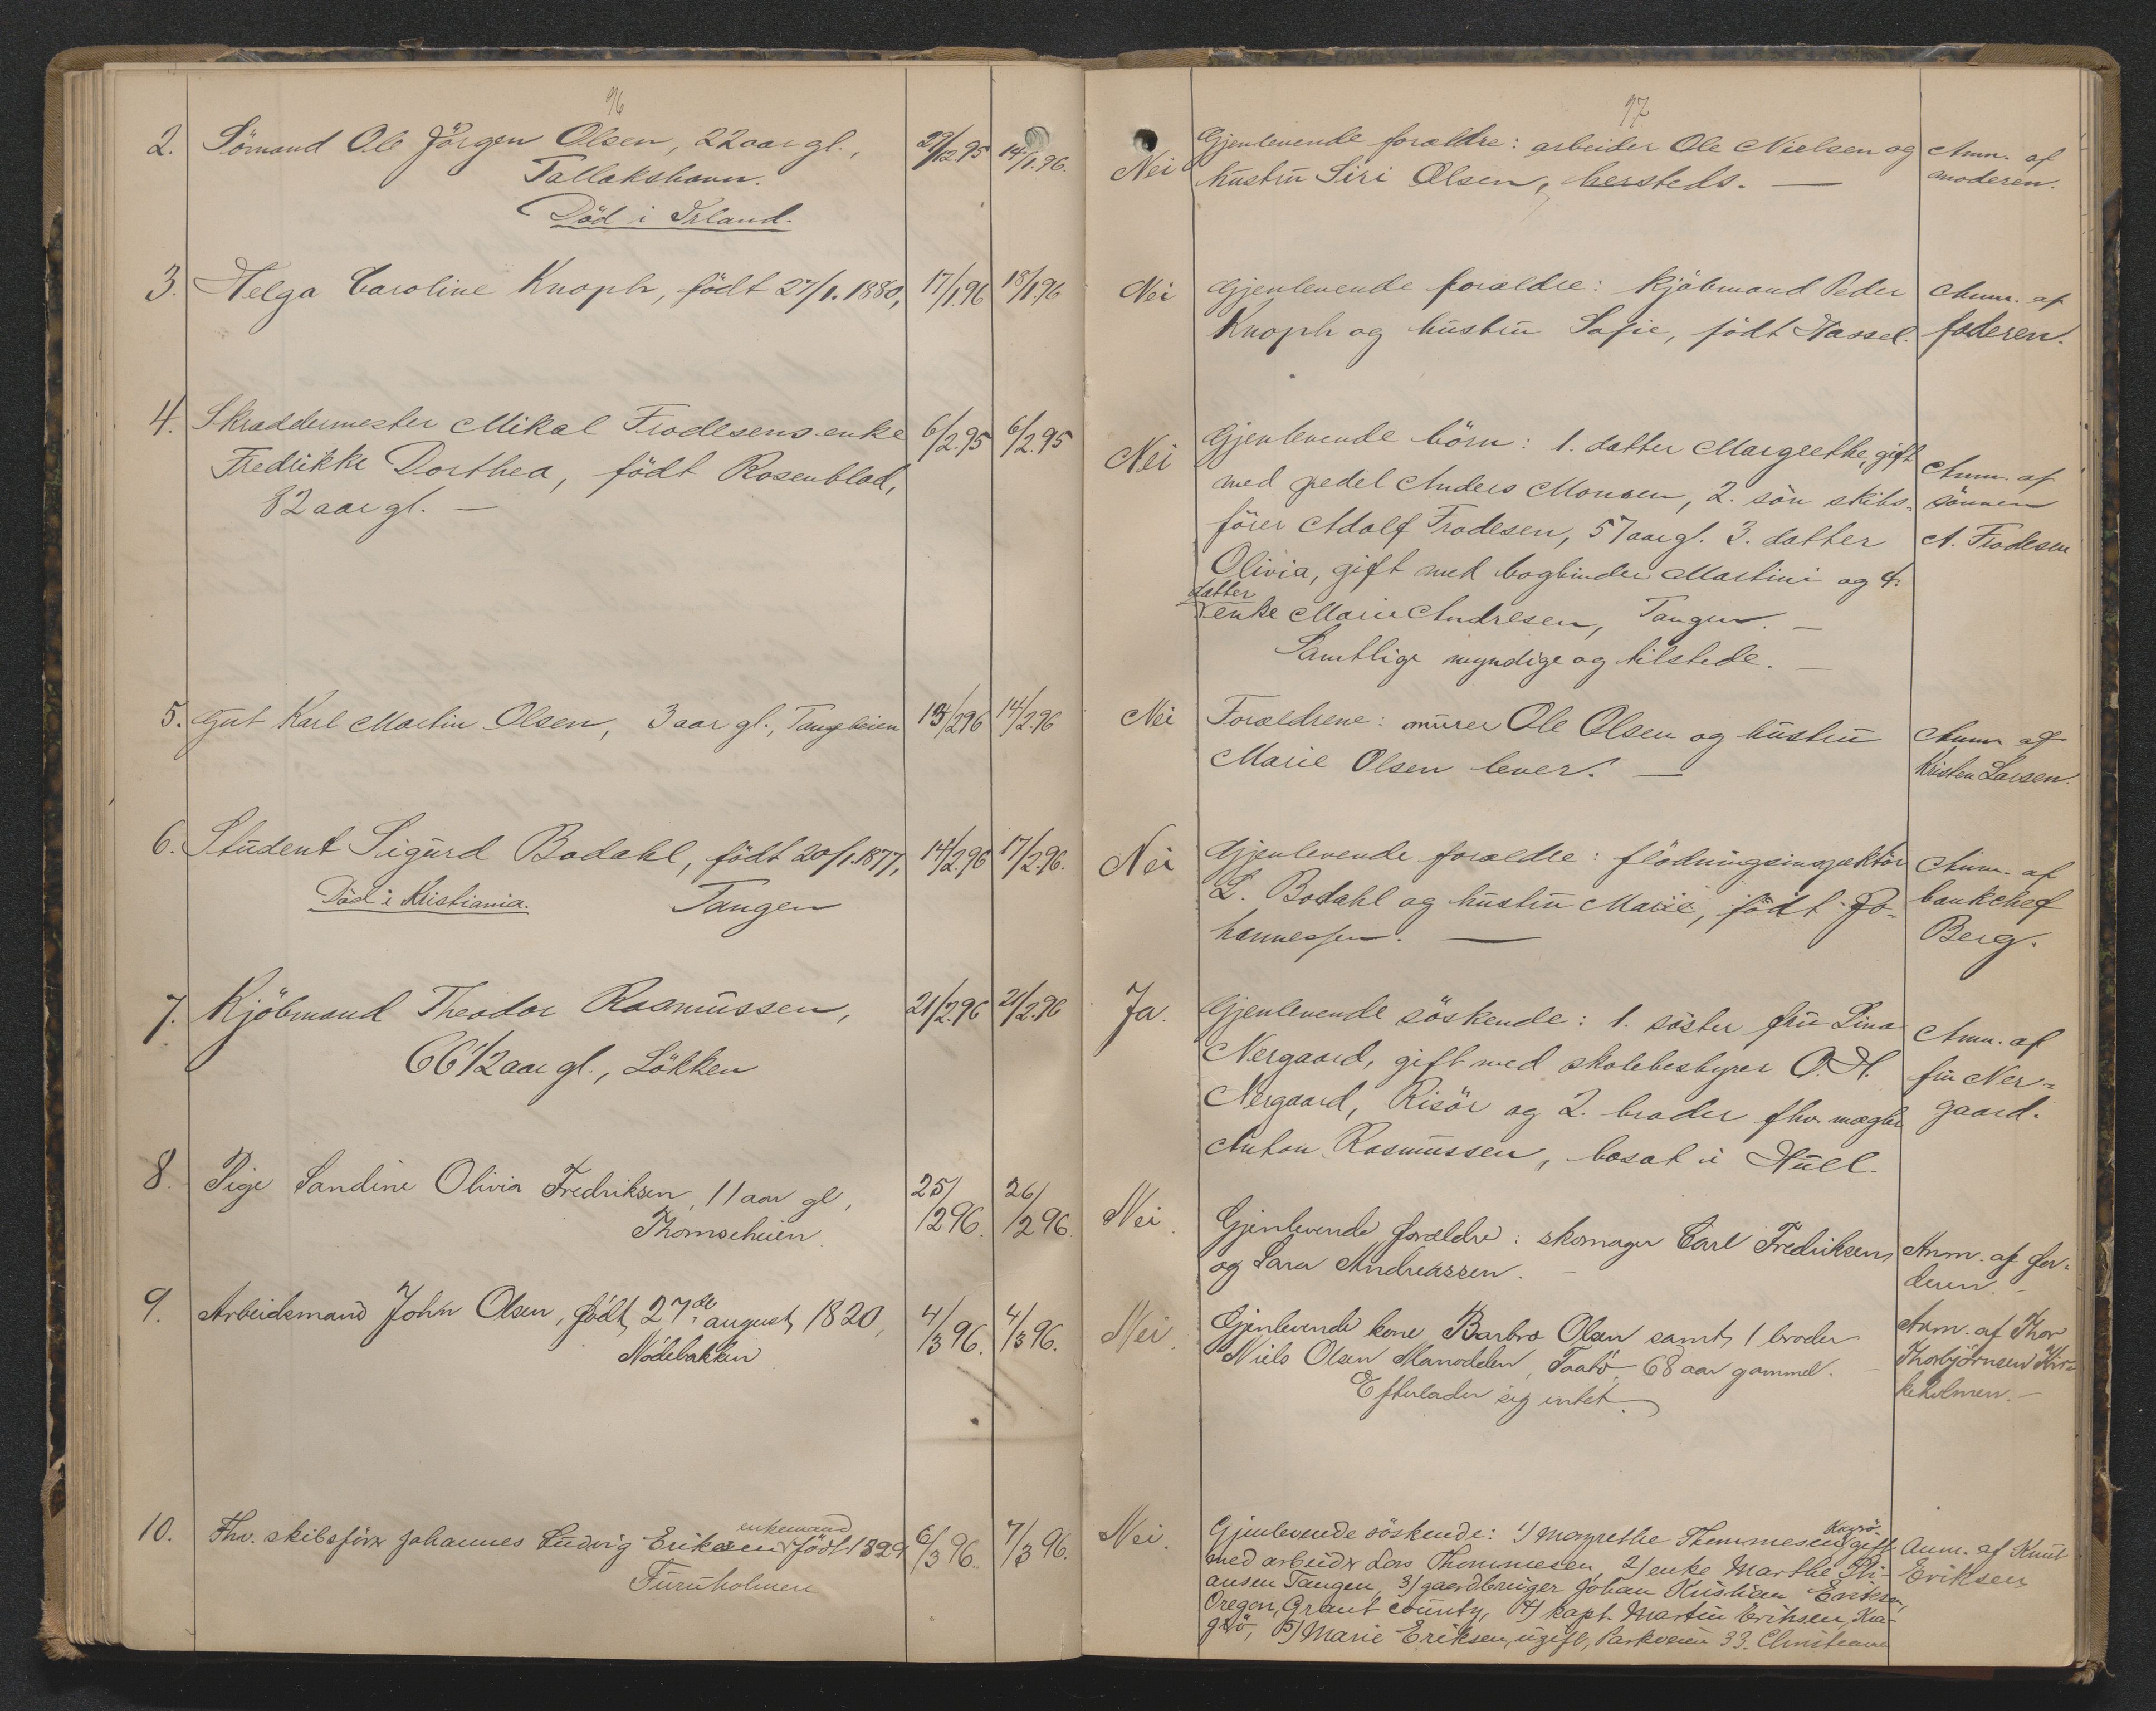 96
2. Sömand Ole Jörgen Olsen, 22 aar gl., 29/12.95 14/1.96.
Tallakshavn.
Död i Irland.
3. Helga Caroline Knoph, födt 27/1.1880, 17/1.96 18/1.96
4. Skræddermester Mikal Frodesens enke 6/2.95 6/2.95
Fredrikke Dorthea, födt Rosenblad,
82 aar gl. —
5. Gut Karl Martin Olsen, 3 aar gl., Tangheien 13/2.96 14/2.96
6. Student Sigurd Bodahl, födt 20/1.1877, 14/2.96 17/2.96.
Död i Kristiania. Tangen
7. Kjöbmand Theodor Rasmussen, 21/2.96 21/2.96
66 1/2 aar gl., Lökken
8. Pige Sandine Olivia Fredriksen, 11 aar gl, 25/2 96. 26/2 96.
Thomseheien.
9. Arbeidsmand John Olsen, födt 27de august 1820, 4/3 96. 4/3 96.
Nödebakken
enkemand
10. Fhv. skibsförer Johannes Ludvig Eriksen födt 1829 6/3 96. 7/3 96.
Furuholmen
97
Nei Gjenlevende forældre: arbeider Ole Nielsen og Anm. af
hustru Siri Olsen, hersteds. — moderen.
Nei Gjenlevende forældre: kjöbmand Peder Anm. af
Knoph og hustru Sofie, födt Hassel. faderen.
Nei Gjenlevende börn: 1. datter Margrethe, gift Anm. af
med pedel Anders Monsen, 2. sön skibs- sönnen
förer Adolf Frodesen, 57 aar gl. 3. datter A. Frodesen
Olivia, gift med bogbinder Martini og 4.
datter
enke Marie Andresen, Tangen. —
Samtlige myndige og tilstede. —
Nei Forældrene: murer Ole Olsen og hustru Anm af
Marie Olsen lever. — Kristen Larsen.
Nei Gjenlevende forældre: flödningsinspektör Anm. af
L. Bodahl og hustru Marie, födt Jo- bankchef
hannessen. — Berg.
Ja. Gjenlevende söskende: 1. söster fru Lina Anm. af
Nergaard, gift med skolebestyrer O. H. fru Ner-
Nergaard, Risör og 2. broder fhv. mægler gaard.
Anton Rasmussen, bosat i Hull.
Nei. Gjenlevende forældre: skomager Carl Fredriksen Anm. af for-
og Sara Andreassen. — deren. —
Nei. Gjenlevende kone Barbro Olsen samt 1 broder Anm. af Thor
Niels Olsen Manodden, Taatö 68 aar gammel. — Thorbjörnsen Kir-
Efterlader sig intet. keholmen. —
Kragerö
Nei. Gjenlevende söskende: 1) Margrethe Thommesen gift Anm. af Knut
med arbeider Lars Thommesen, 2) enke Marthe Sti- Eriksen
ansen Tangen, 3) gaardbruger Johan Kristian Eriksen,
Oregon, Grant county, 4) kapt. Martin Eriksen, Kra-
gerö, 5) Marie Eriksen, ugift, Parkveien 33. Christiania